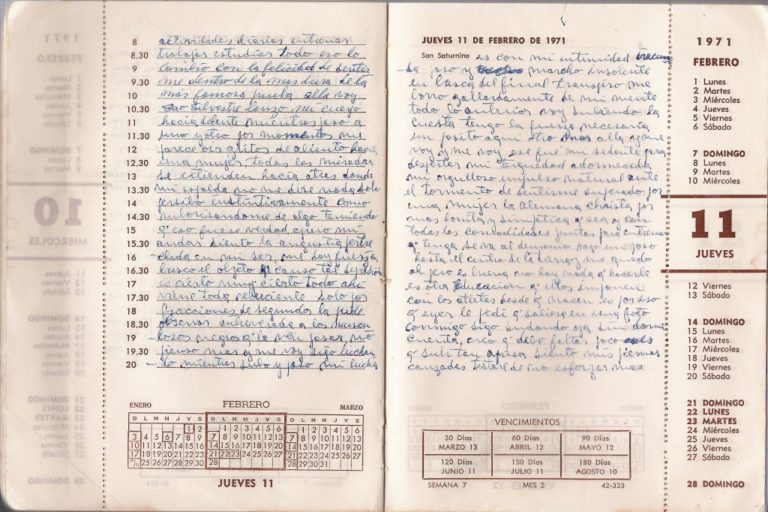 1971
FEBRERO
10
MIERCOLES
8 actividades diarias entrenar
8.30 trabajar estudiar todo eso lo
9 cambio con la felicidad de sentir
9.30 me dentro de la
10 mas famosa voy
10.30 Silvestre
11 hacia delante mientras paso a
11.30 uno y otro por momentos me
12 parece oir gritos de aliento hacia
12.30 una mujer todas las miradas
13 se extienden hacia atras donde
13.30 mi espalda no me dice nada solo
14 percibo instintivamente como
14.30 de algo temiendo
15 q' eso fuese verdad apuro mi
15.30 andar siento la angustia
16 en mi ser, me doy fuerzas
16.30 busco el objeto q' causa tal
17 es cierto muy cierto todo ahi
17.30 viene toda reluciente solo por
18 fracciones de segundo la pude
18.30 observar a los
19 negros q' la ven pasar, no
19.30 pienso mas y me voy sigo luchan
20 do mientras subo y paso mi lucha
ENERO
D L M M J V S
1 2
3 4 5 6 7 8 9
10 11 12 13 14 15 16
17 18 19 20 21 22 23
25 26 27 28 29 30
FEBRERO
D L M M J V S
1 2 3 4 5 6
7 8 9 10 11 12 13
14 15 16 17 18 19 20
21 22 23 24 25 26 27
28
MARZO
D L M M J V S
1 2 3 4 5 6
7 8 9 10 11 12 13
14 15 16 17 18 19 20
21 22 23 24 25 26 27
28 29 30 31
JUEVES 11
JUEVES 11 DE FEBRERO DE 1971
San Saturnino es con mi intimidad
paso y marcho insolente
en busca del final transpiro me
corro gallardamente de mi mente
todo lo anterior voy subiendo la
cuesta tengo la fuerza necesaria
un josito aqui otro mas alla y me
voy y me voy ese fue mi sedante para
despertar mi terquedad adormecida
mi orgulloso impulso natural ante
el tormento de sentirme superado por
una mujer la alemana chaista por
mas bonita y simpatica q' sea y con
todas las comodidades juntas para entrenar
q' tenga se va al demonio hago un pozo
hasta el centro de la tierra me quedo
ahi pero es bueno no hay nada q' hacerle
es otra educacion q' ellos imponen
con los atletas desde q' nacen es por eso
q' ayer le pedi q' saliera en una foto
conmigo sigo sudando ya sin darme
cuenta, creo q' debe faltar poco
q' subir tan aprisa siento mis piernas
cansadas trataré de no esforzar mas
VENCIMIENTOS
30 Días MARZO 13
60 Días ABRIL 12
90 Días MAYO 12
120 Días JUNIO 11
150 Días JULIO 11
180 Días AGOSTO 10
SEMANA 7 MES 2 42-323
1971
FEBRERO
1 Lunes
2 Martes
3 Miércoles
4 Jueves
5 Viernes
6 Sábado
7 DOMINGO
8 Lunes
9 Martes
10 Miércoles
11
JUEVES
12 Viernes
13 Sábado
14 DOMINGO
15 Lunes
16 Martes
17 Miércoles
18 Jueves
19 Viernes
20 Sábado
21 DOMINGO
22 LUNES
23 MARTES
24 Miércoles
25 Jueves
26 Viernes
27 Sábado
28 DOMINGO